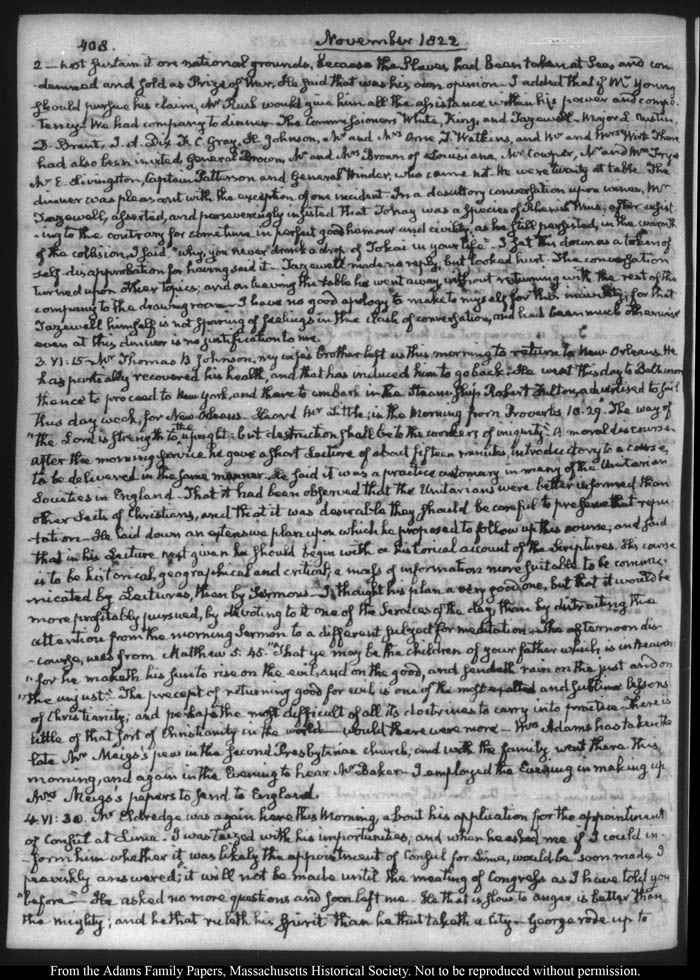 408. November 1822
2 — not sustain it on national grounds, because the Slaves had been taken at Sea, and con
-demned and sold as Prize of War. He said that was his own opinion. I added that if Mr Young
should pursue his claim, Mr Rush would give him all the assistance within his power and compe-
tency. We had company to dinner. The Commissioners White, King, and Tazewell. Major L. Austin,
D. Brent, J. A. Dix, F. C. Gray, Johnson, Mr and Mrs Orne, T. Watkins, and Mr and Mrs Wirt. There
had also been invited General Brown, Mr and Mrs Brown of Louisiana, Mr Cowper, Mr and Mrs
Mr E. Livingston, Captain Patterson and General Winder, who came not. We were twenty at table. The
dinner was pleasant with the exception of one incident. In a desultory conversation upon wines, Mr
Tazewell, asserted, and perseveringly insisted that Tokay was a species of Rhenish Wine; after insist
-ing to the contrary for some time in perfect good humour and civility, as he still persisted, in the warmth
of the collision, I said, "why, you never drank a drop of Tokai in your life." I set this down as a token of
self-disapprobation for having said it. Tazewell made no reply, but looked hurt. The conversation
turned upon other topics; and on leaving the table he went away, without returning with the rest of the
company to the drawing room. I have no good apology to make to myself for this incivility; for that
Tazewell himself is not sparing of feelings in the clash of conversation, and had been much otherwise
even at this dinner is no justification to me.
3. VI: 15 — Mr Thomas B. Johnson, my wife's brother left us this morning to return to New Orleans. He
has partially recovered his health, and that has induced him to go back. He went this day to Baltimore
thence to proceed to New York, and there to embark in the Steam Ship Robert Fulton, advertised to sail
this day week, for New Orleans. Heard Mr Little; in the Morning from Proverbs 10. 29. "The way of
"the Lord is strength to the upright: but destruction shall be to the workers of iniquity." A moral discourse.
After the morning service he gave a short Lecture of about fifteen minutes, introductory to a course,
to be delivered in the same manner. He said it was a practice customary in many of the Unitarian
Societies in England. That it had been observed that the Unitarians were better informed than
other Sects of Christians, and that it was desirable they should be careful to preserve that repu-
tation. He laid down an extensive plan upon which he proposed to follow up this course; and said
that in his Lecture next given he should begin with a historical account of the Scriptures. His course
is to be historical, geographical and critical; a mass of information more suitable to be commu-
nicated by Lectures, than by Sermons. I thought his plan a very good one, but that it would be
more profitably pursued, by devoting to it one of the Services of the day, than by distracting the
attention from the morning Sermon to a different subject for meditation. The afternoon dis-
-course, was from Matthew 5. 45. "That ye may be the children of your father which is in heaven:
"for he maketh his sun to rise on the evil, and on the good, and sendeth rain on the just and on
"the unjust." The precept of returning good for evil is one of the most exalted and sublime lessons
of Christianity; and perhaps the most difficult of all its doctrines to carry into practice. There is
little of that sort of Christianity in the world — would there were more — Mrs Adams has taken the
late Mr Meigs's pew in the Second Presbyterian church, and with the family, went there this
morning, and again in the Evening to hear Mr Baker. I employed the Evening in making up
Mrs Meigs's papers to send to England.
4. VI: 30. Mr Eldredge was again here this Morning, about his application for the appointment
of Consul at Lima. I was teized with his importunities, and when he asked me if I could in-
-form him whether it was likely the appointment of Consul for Lima, would be soon made, I
peevishly answered; it will not be made until the meeting of Congress as I have told you
"before". He asked no more questions and soon left me. He that is slow to anger is better than
the mighty; and he that ruleth his Spirit than he that taketh a City. George rode up to
From the Adams Family Papers, Massachusetts Historical Society. Not to be reproduced without permission.